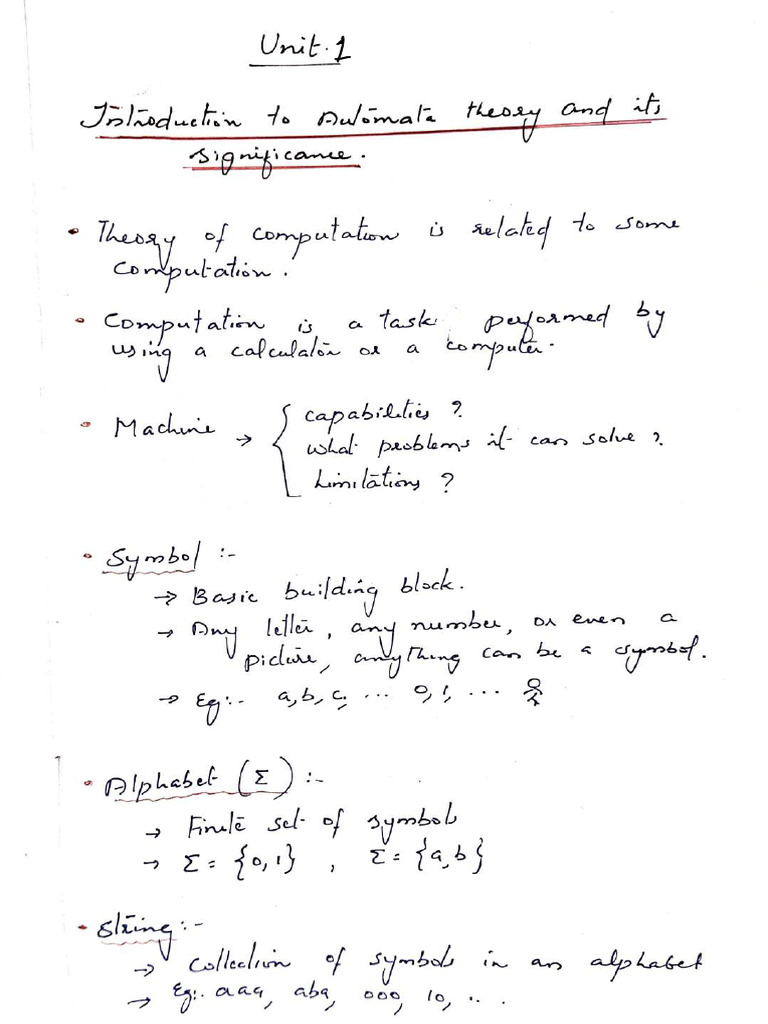 Unit.1
Introduction to Automata theory and its
significance.
• Theory of computation is related to some
computation.
• Computation is a task performed by
using a calculator or a computer.
• Machine → { capabilities ?
what problems it can solve ?
Limitations ?
• Symbol :-
→ Basic building block.
→ Any letter, any number, or even a
picture, anything can be a symbol.
→ Eg:- a, b, c, ... 0, 1, ...
• Alphabet (Σ) :-
→ Finite set of symbols
→ Σ = {0,1} , Σ = {a,b}
• String :-
→ Collection of symbols in an alphabet
→ Eg:- aaa, aba, 000, 10, ...